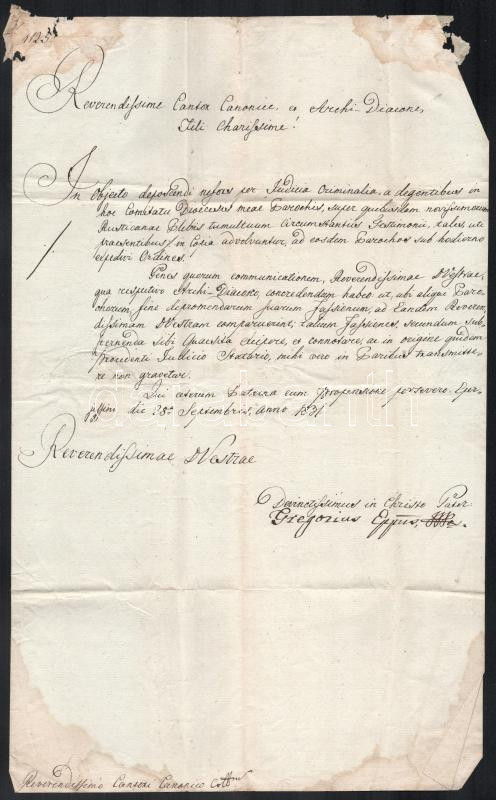 1125
Reverendissime Cantor Canonice, et Archi-Diacone,
Fili Charissime!
In Objecto deposcendi per Judicia Criminalia, a degentibus in
hoc Comitatu Dioecesis meae Parochis, super quibusdam novissimorum
Rusticanae Plebis tumultuum Circumstantiis Testimonii, tales, uti
praesentibus in Copia advolvuntur, ad eosdem Parochos sub hodierno
expedivi Ordines.
Penes quorum communicationem, Reverendissimae D Vestrae,
qua respectivo Archi-Diacono, concredendum habeo: ut, ubi aliqui Paro-
chorum fine depromendarum suarum Fassionum, ad Eandem Reveren-
dissimam D Vestram comparuerint, talium Fassiones, secundum
sibi Quaesita excipere, et connotare, ac in origine quidem
Judicio Statario, mihi vero in Paribus transmitte-
re non gravetur.
Qui caeterum Paterno cum Propensione persevero. Eper-
jessini die 28a Septembris, anno 1831
Reverendissimae D Vestrae
Devinctissimus in Christo Pater
Gregorius Eppus,
Reverendissimo Cantori Canonico